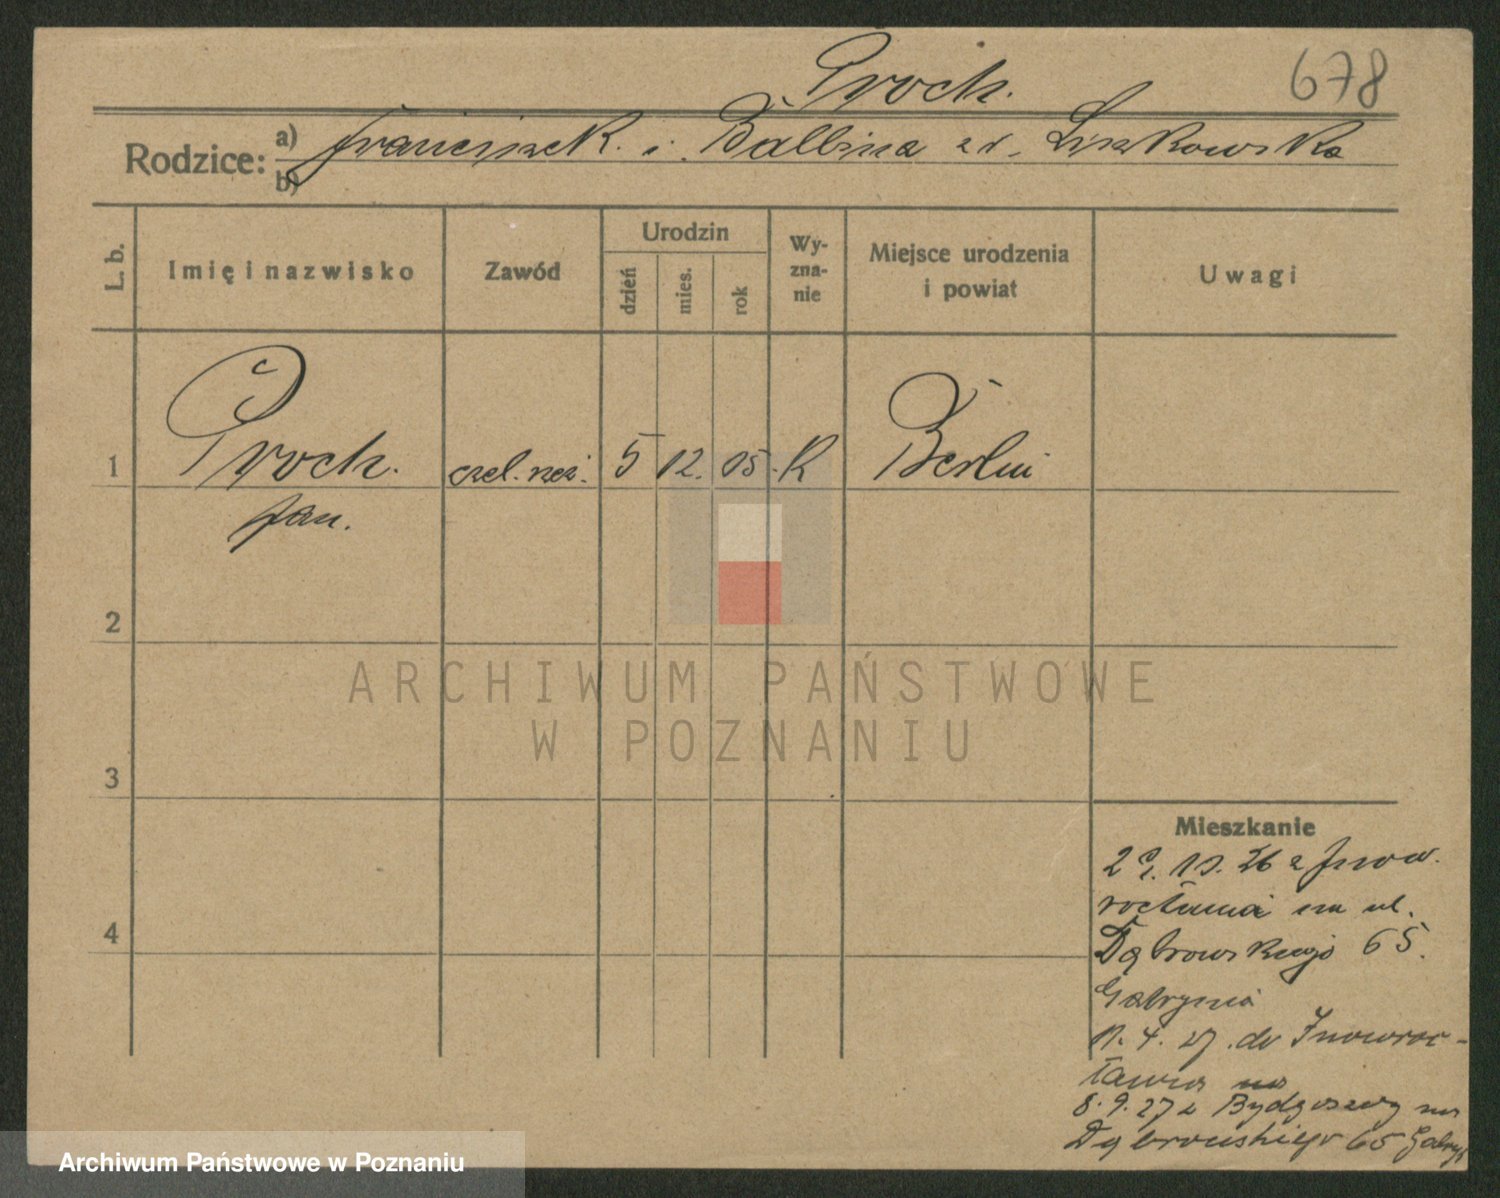 Proch.
678
Rodzice: a) Franciszek. i. Balbina zd. Liszkowska
b)
L. b.
Imię i nazwisko
Zawód
Urodzin
dzień
mies.
rok
Wy-
zna-
nie
Miejsce urodzenia
i powiat
Uwagi
1 Proch. czel. rzeź. 5 12. 05. K Berlin
Jan.
2
3
4
ARCHIWUM PAŃSTWOWE
W POZNANIU
Mieszkanie
26 z Inow.
rocławia na ul.
Dąbrowskiego 65.
4. 27 do Inowroc-
ławia na
8.9.27 z Bydgoszczy na
Dąbrowskiego 65
Archiwum Państwowe w Poznaniu